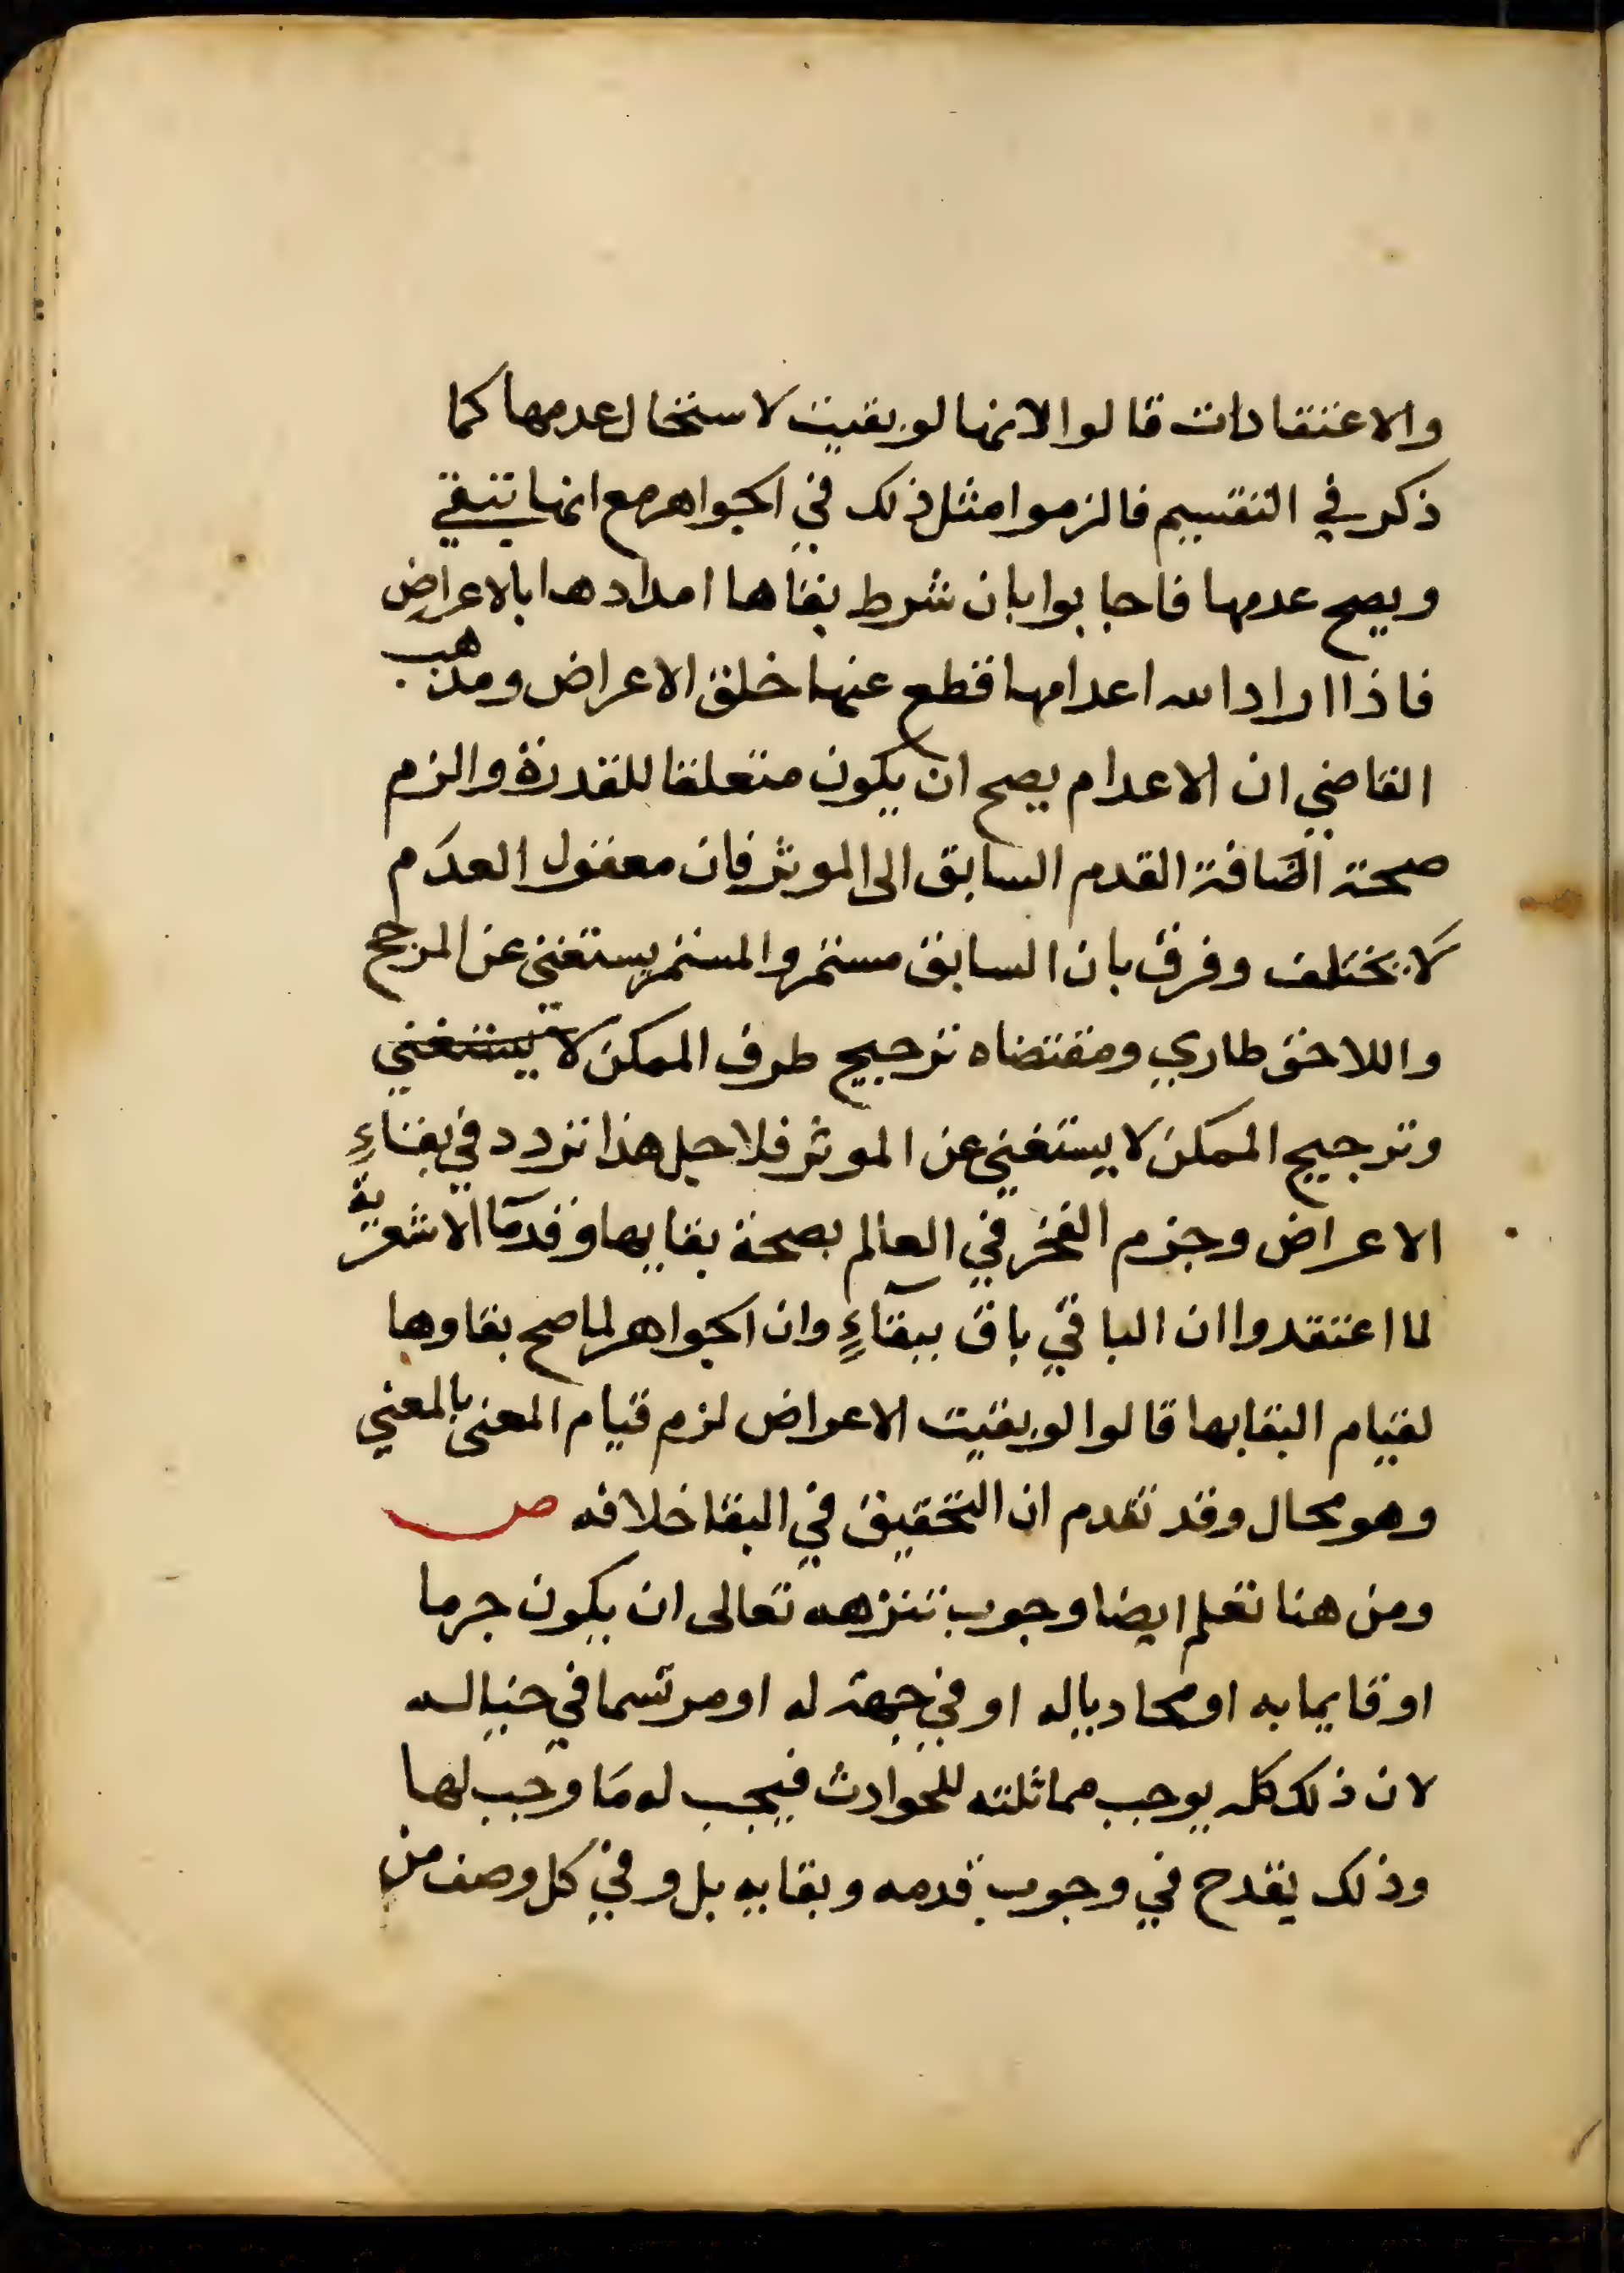 والاعتقادات قالوا لانها لو بقيت لاستحال عدمها كما
ذكر في التقسيم فالزموا مثل ذلك في الجواهر مع انها تبقي
ويصح عدمها فاجابوا بان شرط بقاها امدادها بالاعراض
فاذا اراد الله اعدامها قطع عنها خلق الاعراض ومذهب
القاضي ان الاعدام يصح ان يكون متعلقا للقدرة والزم
صحة اضافة القدم السابق الى الموثر فان معقول العدم
لا يختلف وفرق بان السابق مستمر والمستمر يستغني عن المرجح
واللاحق طاري ومقتضاه ترجيح طرف الممكن لا يستغني
وترجيح الممكن لا يستغني عن الموثر فلاجل هذا تردد في بقاءِ
الاعراض وجزم الفخر في العالم بصحة بقايها وقدمآ الاشعرية
لما اعتقدوا ان الباقي باق ببقآءٍ وان الجواهر لما صح بقاوها
لقيام البقا بها قالوا لو بقيت الاعراض لزم قيام المعنى بالمعني
وهو محال وقد تقدم ان التحقيق في البقا خلافه ص
ومن هنا تعلم ايضا وجوب تنزهه تعالى ان يكون جرما
او قايما به او محاديا له او في جهة له او مرتسما في خياله
لان ذلك كله يوجب مماثلته للحوادث فيجب له مَا وجب لها
وذلك يقدح في وجوب قدمه وبقايه بل وفي كل وصف من